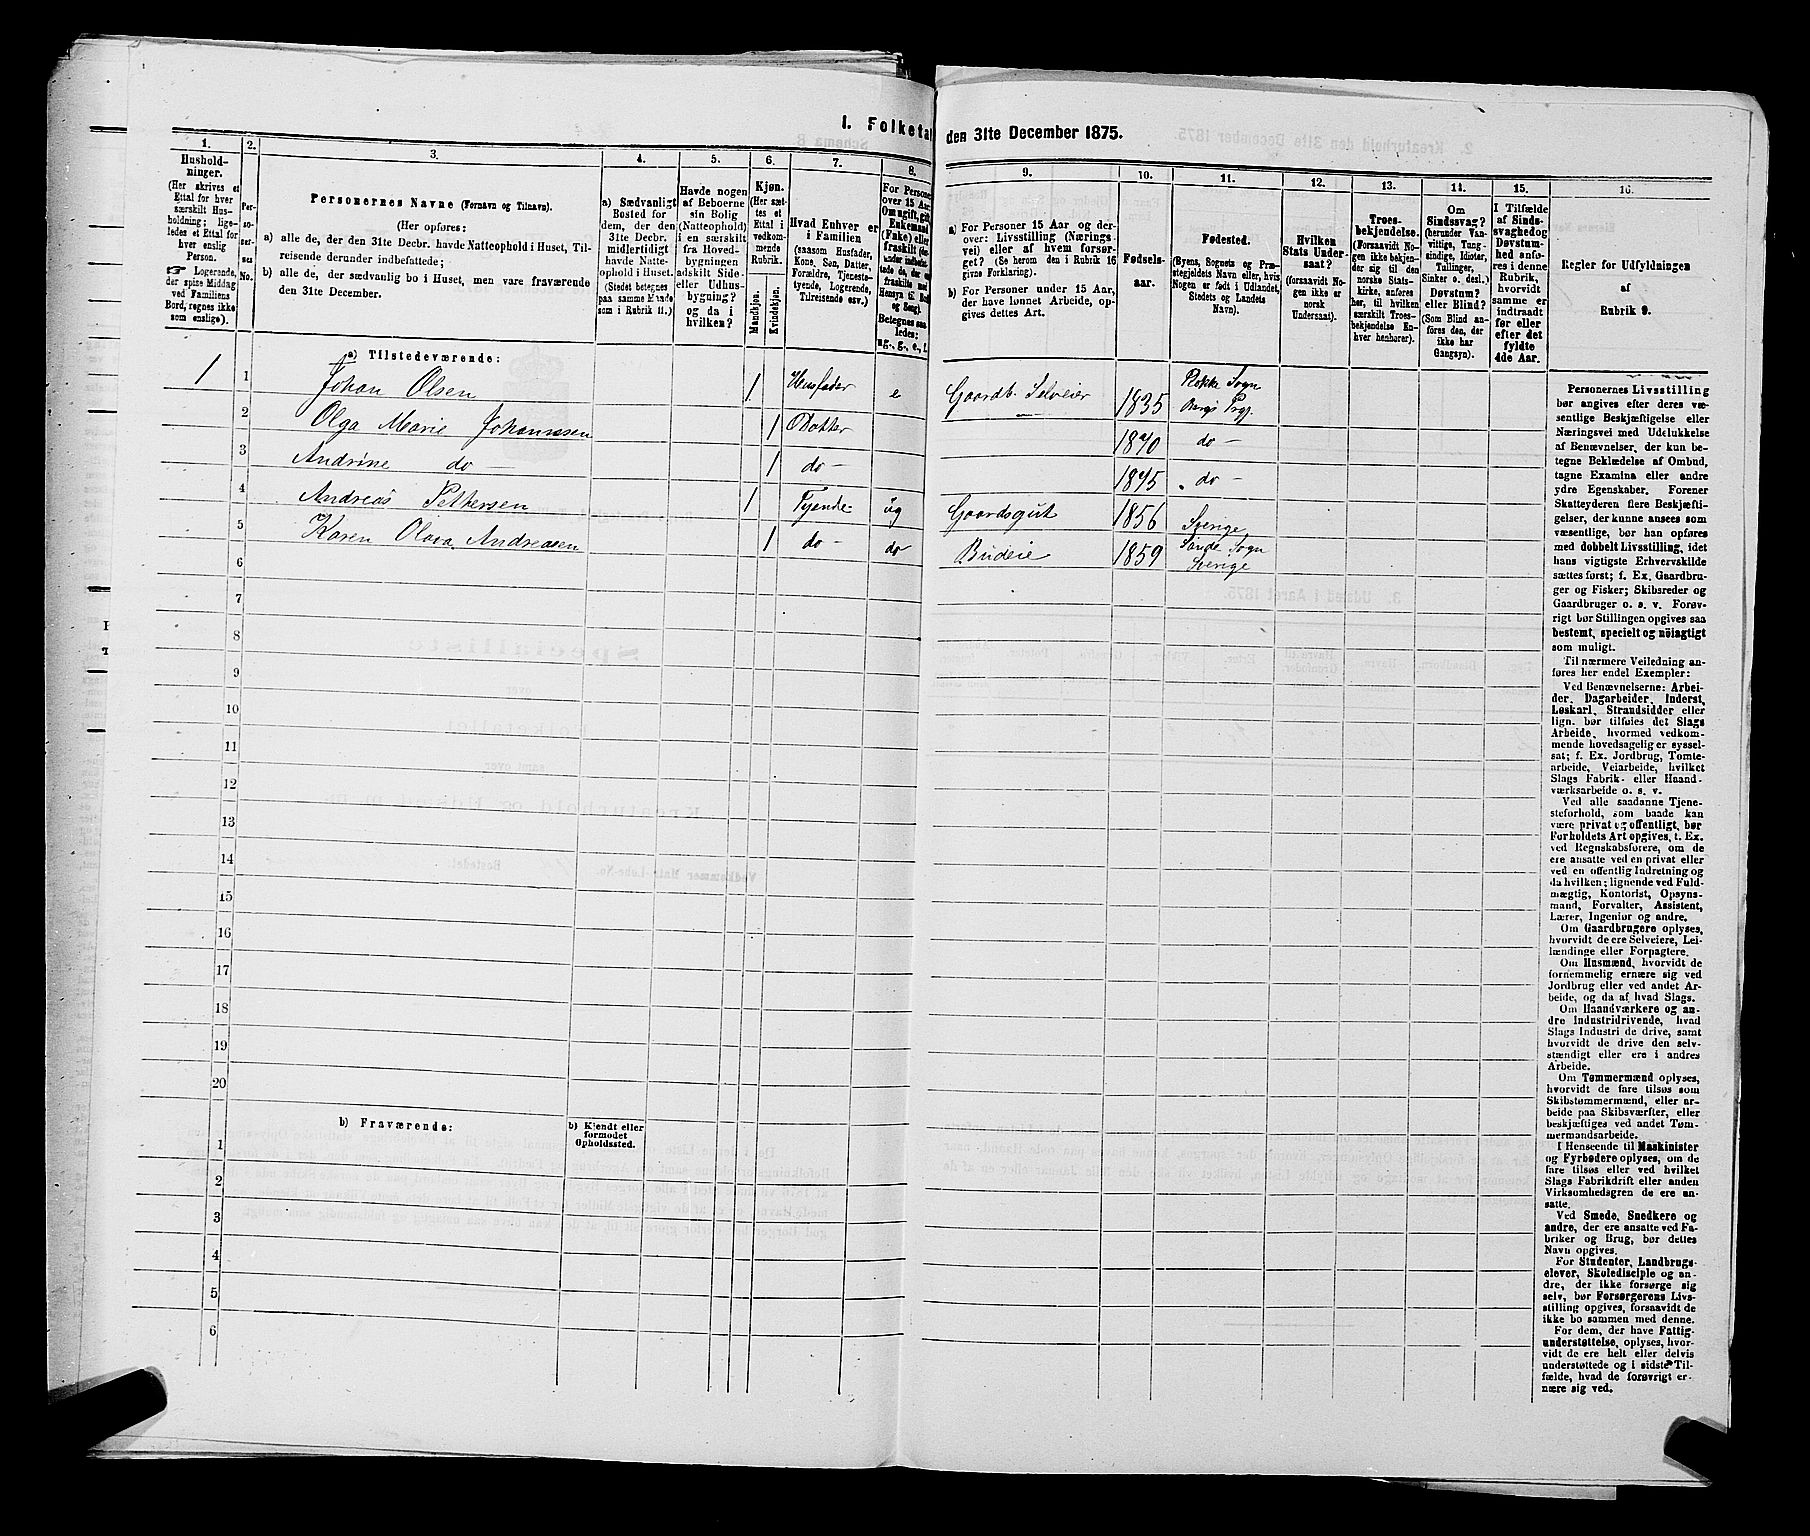 I. Folketal
den 31te December 1875.
1.
Hushold-
ninger.
(Her skrives et
Ettal for hver
særskilt Hus-
holdning; lige-
ledes et Ettal for
hver enslig
Person.
☛ Logerende,
der spise Middag
ved Familiens
Bord, regnes ikke
som enslige).
2.
Per-
so-
ner-
nes
No.
3.
Personernes Navne (Fornavn og Tilnavn).
(Her opføres:
a) alle de, der den 31te Decbr. havde Natteophold i Huset, Til-
reisende derunder indbefattede;
b) alle de, der sædvanlig bo i Huset, men vare fraværende
den 31te December.
4.
a) Sædvanligt
Bosted for
dem, der den
31te Decbr.
midlertidigt
havde Natte-
ophold i Huset.
(Stedet betegnes
paa samme Maade
som i Rubrik 11.)
5.
Havde nogen
af Beboerne
sin Bolig
(Natteophold)
i en særskilt
fra Hoved-
bygningen
adskilt Side-
eller Udhus-
bygning?
og da i
hvilken?
6.
Kjøn.
(Her sæt-
tes et
Ettal i
vedkom-
mende
Rubrik.
Mandkjøn.
Kvindekjøn.
7.
Hvad Enhver er
i Familien
(saasom Husfader,
Kone, Søn, Datter,
Forældre, Tjeneste-
tyende, Logerende,
Tilreisende osv.)
8.
For Personer
over 15 Aar:
Om ugift, gift,
Enkemand
(Enke) eller
fraskilt
Betegnes saa-
ledes:
ug., g., e., f.
9.
a) For Personer 15 Aar og der-
over: Livsstilling (Nærings-
vei) eller af hvem forsør-
get? (Se herom den i Rubrik 16
givne Forklaring).
b) For Personer under 15 Aar,
der have lønnet Arbeide, op-
gives dettes Art.
10.
Fødsels-
aar.
11.
Fødested.
(Byens, Sognets og Præ-
stegjeldets Navn eller, hvis
Nogen er født i Udlandet,
Stedets og Landets
Navn).
12.
Hvilken
Stats Under-
saat?
(forsaavidt No-
gen ikke er
norsk
Undersaat).
13.
Troes-
bekjendelse.
(Forsaavidt No-
gen ikke bekjen-
der sig til den
norske Stats-
kirke, anføres
her, til hvilken
særskilt Troes-
bekjendelse En-
hver henhører).
14.
Om
Sindssvag?
(herunder Van-
vittige, Tung-
sindige, Idioter,
Tullinger,
Sinker o. desl.)
Døvstum?
eller Blind?
(Som Blind an-
føres den, der
ikke har
Gangsyn).
15.
I Tilfælde
af Sinds-
svaghed og
Døvstum-
hed anfø-
res i denne
Rubrik,
hvorvidt
samme er
indtraadt
før eller
efter det
fyldte
4de Aar.
16.
Regler for Udfyldningen
af
Rubrik 9.
a) Tilstedeværende:
1 1 Johan Olsen 1 Husfader e Gaardb. Selveier 1835 Rokke Sogn
Bergs Prgj.
2 Olga Marie Johannesen 1 Datter 1870 do -
3 Andrine do - 1 do - 1875 do -
4 Andreas Pettersen 1 Tyende ug Gaardsgut 1856 Sverige
5 Karen Olava Andreasen 1 do - do Budeie 1859 Sogn
Sverige
6
7
8
9
10
11
12
13
14
15
16
17
18
19
20
b) Fraværende:
b) Kjendt eller
formodet
Opholdssted.
1
2
3
4
5
6
Personernes Livsstilling
bør angives efter deres væ-
sentlige Beskjæftigelse eller
Næringsvei med Udelukkelse
af Benævnelser, der kun be-
tegne Beklædelse af Ombud,
tagne Examina eller andre
ydre Egenskaber. Forener
Skatteyderen flere Beskjæfti-
gelser, der kunne ansees som
væsentlige, bør han opføres
med dobbelt Livsstilling, idet
hans vigtigste Erhvervskilde
sættes først; f. Ex. Gaardbru-
ger og Fisker; Skibsreder og
Gaardbruger o. s. v. Forøv-
rigt bør Stillingen opgives saa
bestemt, specielt og nöiagtigt
som muligt.
Til nærmere Veiledning an-
føres her endel Exempler:
Ved Benævnelserne: Arbei-
der, Dagarbeider, Inderst,
Løskarl, Strandsidder eller
lign. bør tilføies det Slags
Arbeide, hvormed vedkom-
mende hovedsagelig er syssel-
sat; f. Ex. Jordbrug, Tomte-
arbeide, Veiarbeide, hvilket
Slags Fabrik- eller Haand-
værksarbeide o. s. v.
Ved alle saadanne Tjene-
steforhold, som baade kan
være privat og offentligt, bør
Forholdets Art opgives, t. Ex.
ved Regnskabsførere, om de
ere ansatte ved en privat eller
ved en offentlig Indretning og
da hvilken; lignende ved Fuld-
mægtig, Kontorist, Opsyns-
mand, Forvalter, Assistent,
Lærer, Ingeniør og andre.
Om Gaardbrugere oplyses,
hvorvidt de ere Selveiere, Lei-
lændinge eller Forpagtere.
Om Husmænd, hvorvidt de
fornemmelig ernære sig ved
Jordbrug eller ved andet Ar-
beide, og da af hvad Slags.
Om Haandværkere og an-
dre Industridrivende, hvad
Slags Industri de drive, samt
hvorvidt de drive den selv-
stændigt eller ere i andres
Arbeide.
Om Tømmermænd oplyses,
hvorvidt de fare tilsøs som
Skibstømmermænd, eller ar-
beide paa Skibsværfter, eller
beskjæftiges ved andet Tøm-
mermandsarbeide.
I Henseende til Maskinister
og Fyrbødere oplyses, om de
fare tilsøs eller ved hvilket
Slags Fabrikdrift eller anden
Virksomhedsgren de ere an-
satte.
Ved Smede, Snedkere og
andre, der ere ansatte ved Fa-
briker og Brug, bør dettes
Navn opgives.
For Studenter, Landbrugs-
elever, Skoledisciple og an-
dre, der ikke forsørge sig
selv, bør Forsørgerens Livs-
stilling opgives, forsaavidt de
ikke bo sammen med denne.
For dem, der have Fattig-
understøttelse, oplyses, hvor-
vidt de ere helt eller delvis
understøttede og i sidste Til-
fælde, hvad de forøvrigt er-
nære sig ved.